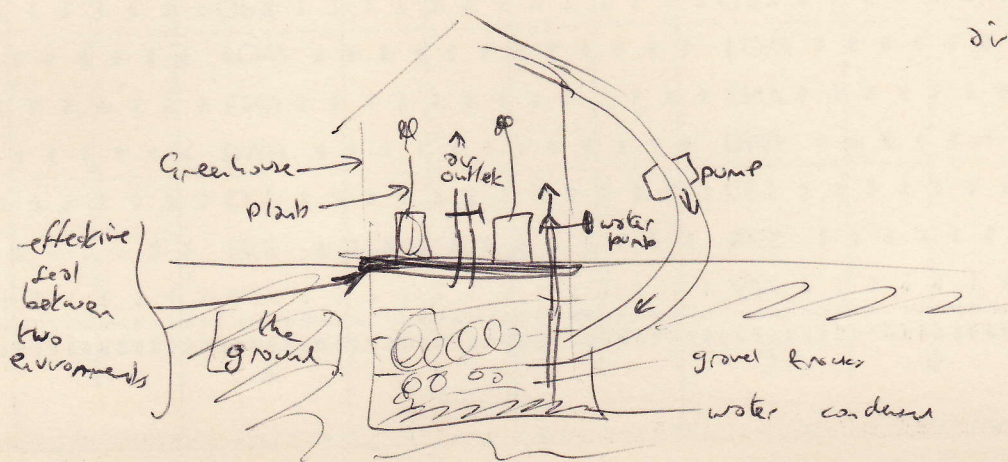 air
Greenhouse
Plants
air
outlet
pump
water
pump
effective
seal
between
two
enviroments
[the
ground]
gravel & rocks
water condensed